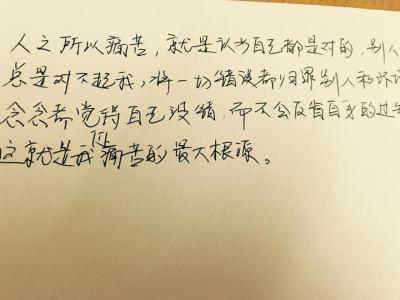 人之所以痛苦，就是认为自己都是对的，别人
总是对不起我，将一切错误都归罪别人和环
念念都觉得自己没错，而不会反省自身的过
这就是我们痛苦的最大根源。